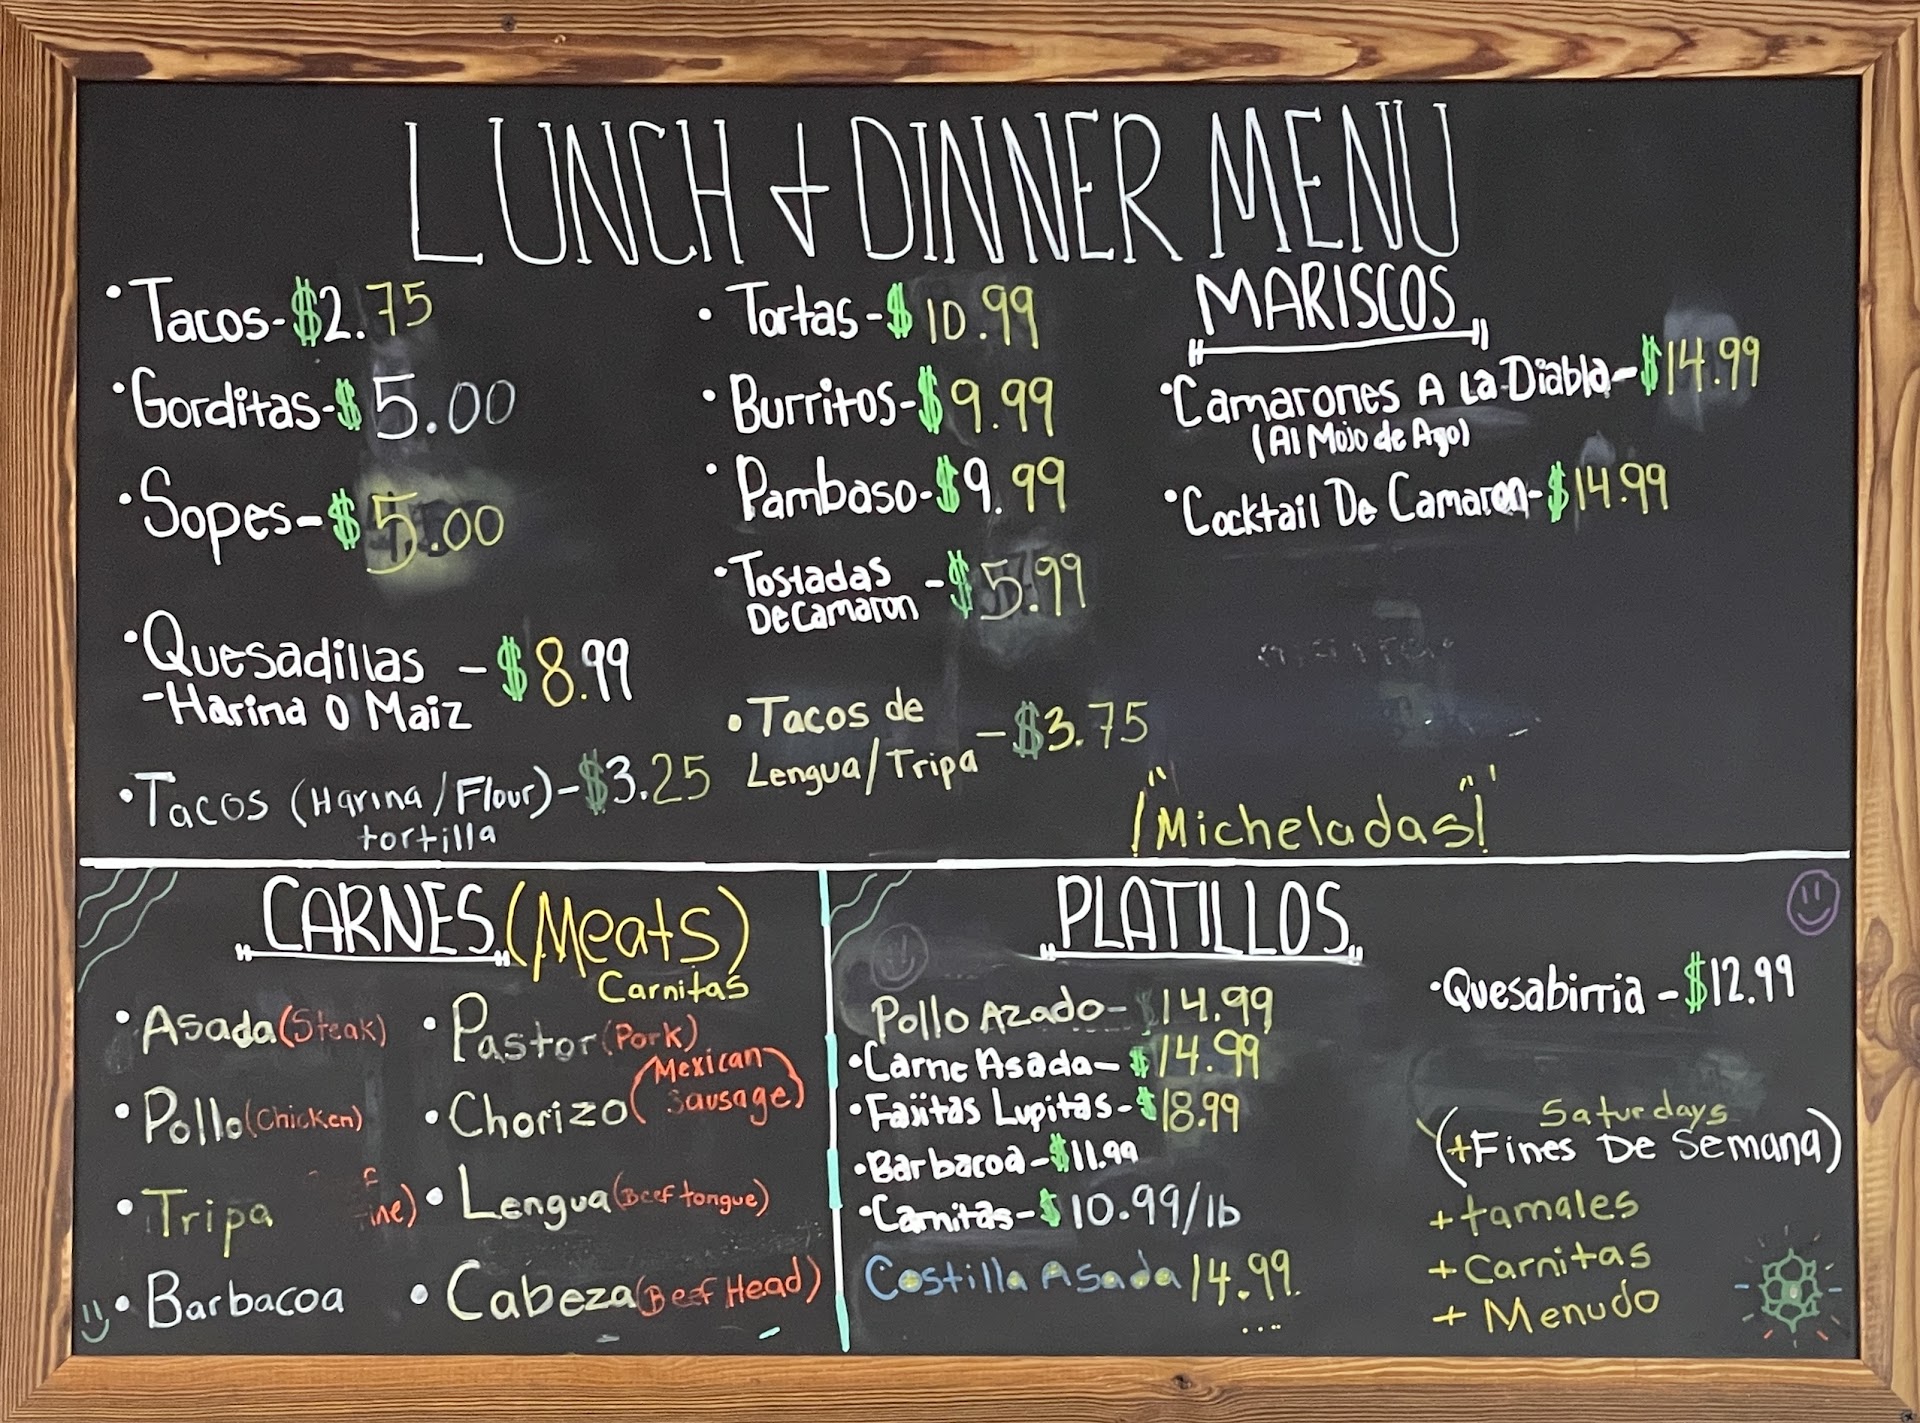 LUNCH & DINNER MENU
• Tacos - $2.75
• Gorditas - $5.00
• Sopes - $5.00
• Quesadillas - $8.99
- Harina O Maiz
• Tacos (Harina / Flour) - $3.25
tortilla
• Tortas - $10.99
• Burritos - $9.99
• Pambaso - $9.99
• Tostadas
De Camaron - $5.99
• Tacos de
Lengua/Tripa - $3.75
"MARISCOS"
• Camarones A La Diabla - $14.99
(Al Mojo de Ago)
• Cocktail De Camaron - $14.99
¡"Micheladas"!
"CARNES" (Meats)
Carnitas
• Asada (Steak)
• Pollo (Chicken)
• Tripa
• Barbacoa
• Pastor (Pork)
• Chorizo (Mexican
Sausage)
• Lengua (Beef tongue)
• Cabeza (Beef Head)
"PLATILLOS"
Pollo Azado - $14.99
• Carne Asada - $14.99
• Fajitas Lupitas - $18.99
• Barbacoa - $11.99
• Carnitas - $10.99/lb
Costilla Asada 14.99
• Quesabirria - $12.99
Saturdays
(+Fines De Semana)
+ tamales
+ Carnitas
+ Menudo